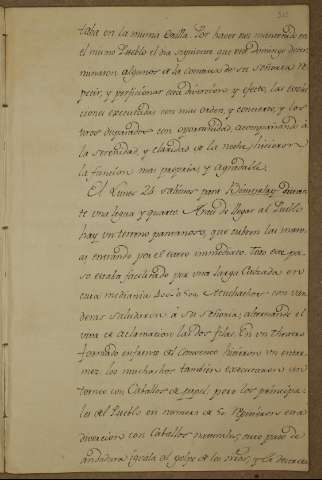 taba en la misma Casilla. Por haver nos mantenido en
el mismo Pueblo el dia siguiente que era Domingo deter
minaron algunos de la comitiva de su señoria re
petir, y perficionar esta divercion, y efecto, las evolu
ciones executadas con mas orden, y concierto, y los
tiros disparados con oportunidad, acompañando à
la serenidad, y claridad de la noche hicieron
la funcion mas propia, y agradable.
El Lunes 24 salimos para duran
te una legua y quarto. Antes de llegar al Pueblo
hay un terreno pantanoso, que cubren las mare
as entrando por el estero inmediato. Todo este pa
so estaba facilitado por una larga Calzada en
cuia mediania de Muchachos con van
deras saludaron à su señoria, alternando el
viva de aclamacion las dos filas. En un Theatro
formado enfrente del Comvento hicieron un entre
mez. los muchachos tambien executaron un
torneo con Caballos de papel, pero los principa
les del Pueblo en numero de 50 repitieron esta
divercion con Caballos naturales, cuio paso de
andadura iguala al golpe de los mismos, y la destreza